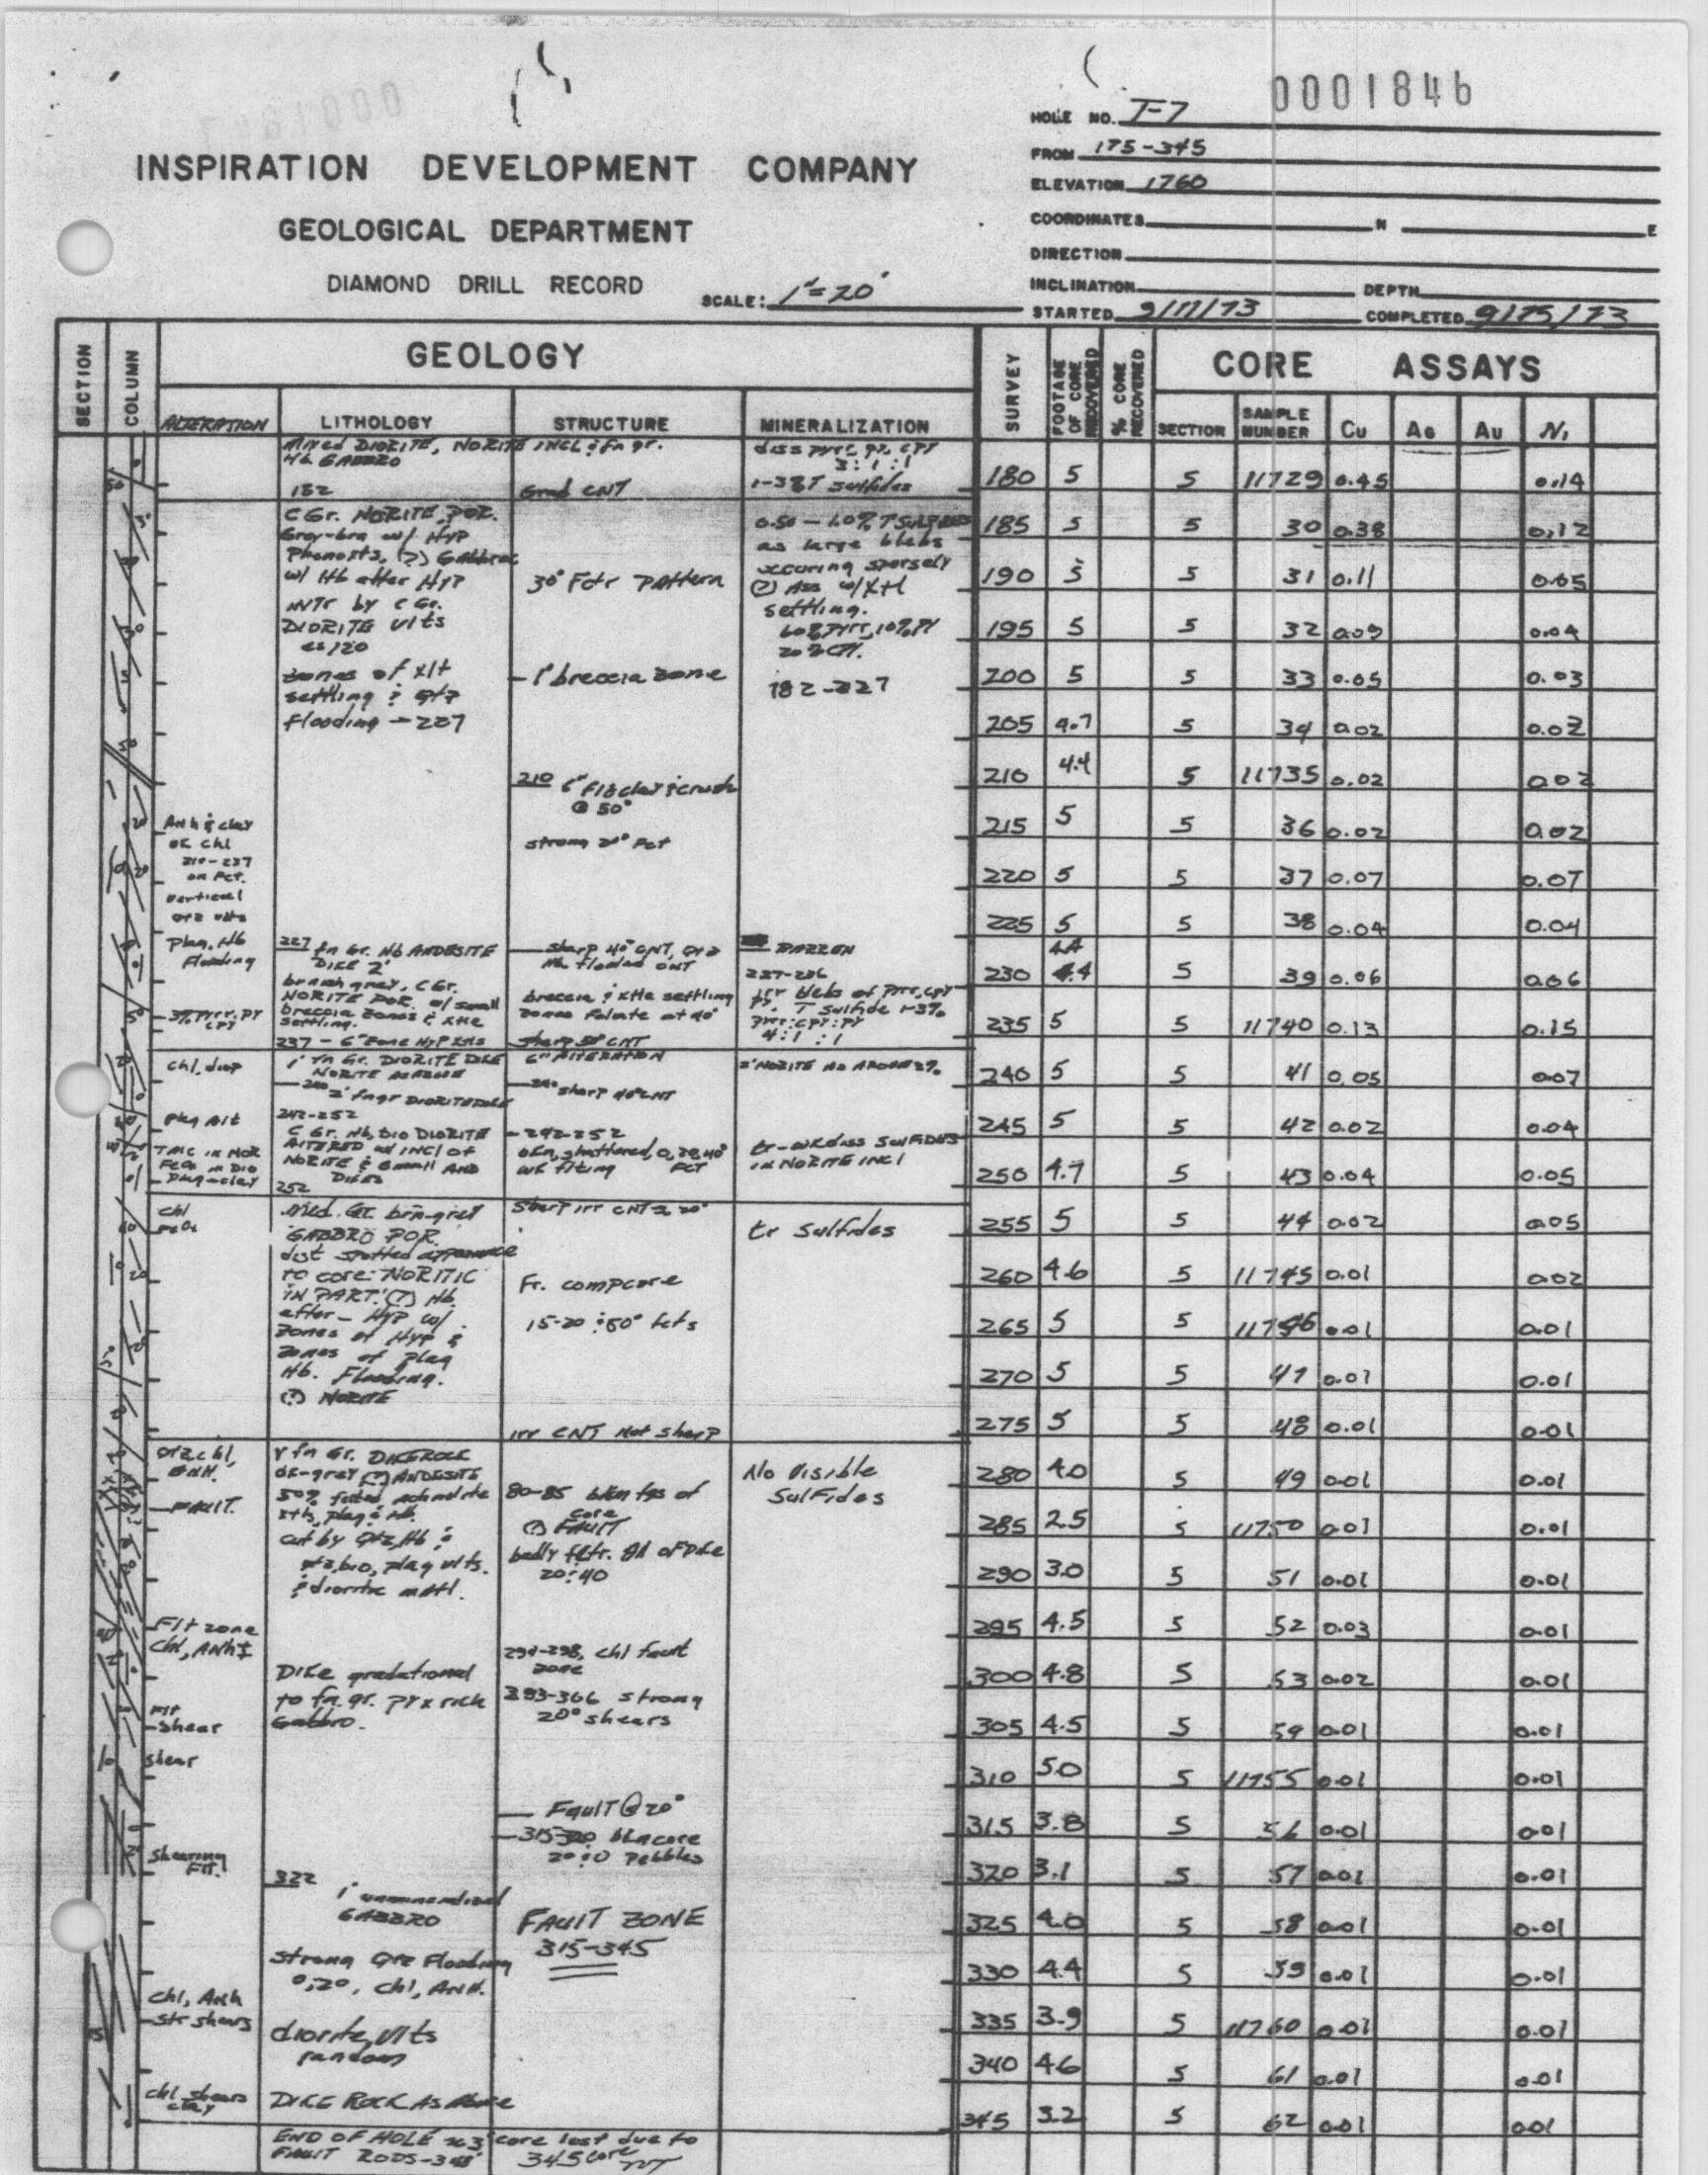 0001846
HOLE NO. T-7
FROM 175-345
ELEVATION 1760
COORDINATES N E
DIRECTION
INCLINATION DEPTH
STARTED 9/17/73 COMPLETED 9/25/73
INSPIRATION DEVELOPMENT COMPANY
GEOLOGICAL DEPARTMENT
DIAMOND DRILL RECORD SCALE: 1"=20'
SECTION COLUMN GEOLOGY SURVEY FOOTAGE OF CORE RECOVERED % CORE RECOVERED CORE ASSAYS
ALTERATION LITHOLOGY STRUCTURE MINERALIZATION SECTION SAMPLE NUMBER Cu Ag Au Ni
Mixed DIORITE, NORITE INCL & fn gr.
Hb GABBRO
182
Grad CNT
3:1:1
1-3% T sulfides
180 5 5 11729 0.45 0.14
C Gr. NORITE POR.
Gray-brn w/ Hyp
Phenoxts, (?) Gabbroic
w/ Hb after Hyp
by C Gr.
DIORITE vlts
zones of xlt
settling & qtz
flooding - 227
30° Fctr pattern
- 1' breccia zone
0.50 - 1.0% T SULFIDES
as large blebs
occuring sparsely
(?) Ass w/ xtl
settling.
60% Pyrr, 10% PY
20% CPY.
182-227
185 5 5 30 0.38 0.12
190 5 5 31 0.11 0.05
195 5 5 32 0.09 0.04
200 5 5 33 0.05 0.03
205 4.7 5 34 0.02 0.02
210 4.4 5 11735 0.02 0.02
210 6" Flt clay & crush
@ 50°
strong 20° Fct
Anh & clay
or chl
210-237
on Fct.
vertical
qtz vlts
215 5 5 36 0.02 0.02
220 5 5 37 0.07 0.07
225 5 5 38 0.04 0.04
plag, Hb
Flooding
227 fn Gr. Hb ANDESITE
DIKE 2'
sharp 40° CNT, Qtz
Hb flooded CNT
BARREN
230 4.4 5 39 0.06 0.06
brnish gray, C Gr.
NORITE POR. w/ small
breccia zones & xtle
settling.
breccia & xtle settling
zones foliate at 40°
irr blebs of Pyrr, cpy
py. T sulfide 1-3%
pyrr:cpy:py
4:1:1
3% Pyrr, PY
CPY
235 5 5 11740 0.13 0.15
237 - 6" zone Hyp xtls
sharp 50° CNT
chl, diop
1' fn Gr. DIORITE DIKE
NORITE AS ABOVE
240
2' fn gr DIORITE DIKE
6" ALTERATION
240 sharp 40° CNT
2' NORITE AS ABOVE 2%
240 5 5 41 0.05 0.07
plag Alt
242-252
C Gr. Hb, bio DIORITE
ALTERED w/ INCL OF
NORITE & small AND
DIKES
252
- 242-252
bkn, shattered, 0, 20, 40°
FCT
tr-wk diss SULFIDES
in NORITE INCL
TALC in NOR
245 5 5 42 0.02 0.04
250 4.7 5 43 0.04 0.05
chl
Med. Gr. brn-grey
GABBRO POR.
dist spotted appearance
to core: NORITIC
IN PART. (?) Hb.
after - Hyp w/
zones of Hyp &
zones of plag
Hb. Flooding.
(?) NORITE
Sharp irr CNT @ 20°
Fr. comp core
15-20 & 50° fcts
irr CNT Not sharp
tr Sulfides
255 5 5 44 0.02 0.05
260 4.6 5 11745 0.01 0.02
265 5 5 11746 0.01 0.01
270 5 5 47 0.01 0.01
275 5 5 48 0.01 0.01
qtz chl,
ANH.
- FAULT.
v fn Gr. DIKE ROCK
dk-gray (?) ANDESITE
50% felted actinolite
xtls, plag & Hb.
cut by qtz, Hb &
qtz, bio, plag vlts.
& dioritic matl.
80-85 bkn fgs of
core
(?) FAULT
badly fctr. all of Dike
20 & 40
No Visible
Sulfides
280 4.0 5 49 0.01 0.01
285 2.5 5 11750 0.01 0.01
290 3.0 5 51 0.01 0.01
295 4.5 5 52 0.03 0.01
Flt zone
Chl, Anh
294-298, chl fault
zone
Dike gradational
to fn. gr. pyx rich
Gabbro.
strong
20° shears
300 4.8 5 53 0.02 0.01
Flt
- shear
305 4.5 5 54 0.01 0.01
shear
310 5.0 5 11755 0.01 0.01
Fault @ 20°
- 315-320 bkn core
20 & 0 pebbles
315 3.8 5 56 0.01 0.01
shearing
Flt.
320 3.1 5 57 0.01 0.01
322
1' unmineralized
GABBRO
FAULT ZONE
315-345
325 4.0 5 58 0.01 0.01
strong Qtz Flooding
0, 20, chl, ANH.
330 4.4 5 59 0.01 0.01
chl, Anh
str shears
diorite vlts
random
335 3.9 5 11760 0.01 0.01
340 4.6 5 61 0.01 0.01
chl shears
clay
DIKE ROCK AS Above
345 3.2 5 62 0.01 0.01
END OF HOLE core lost due to
FAULT RODS 345 core